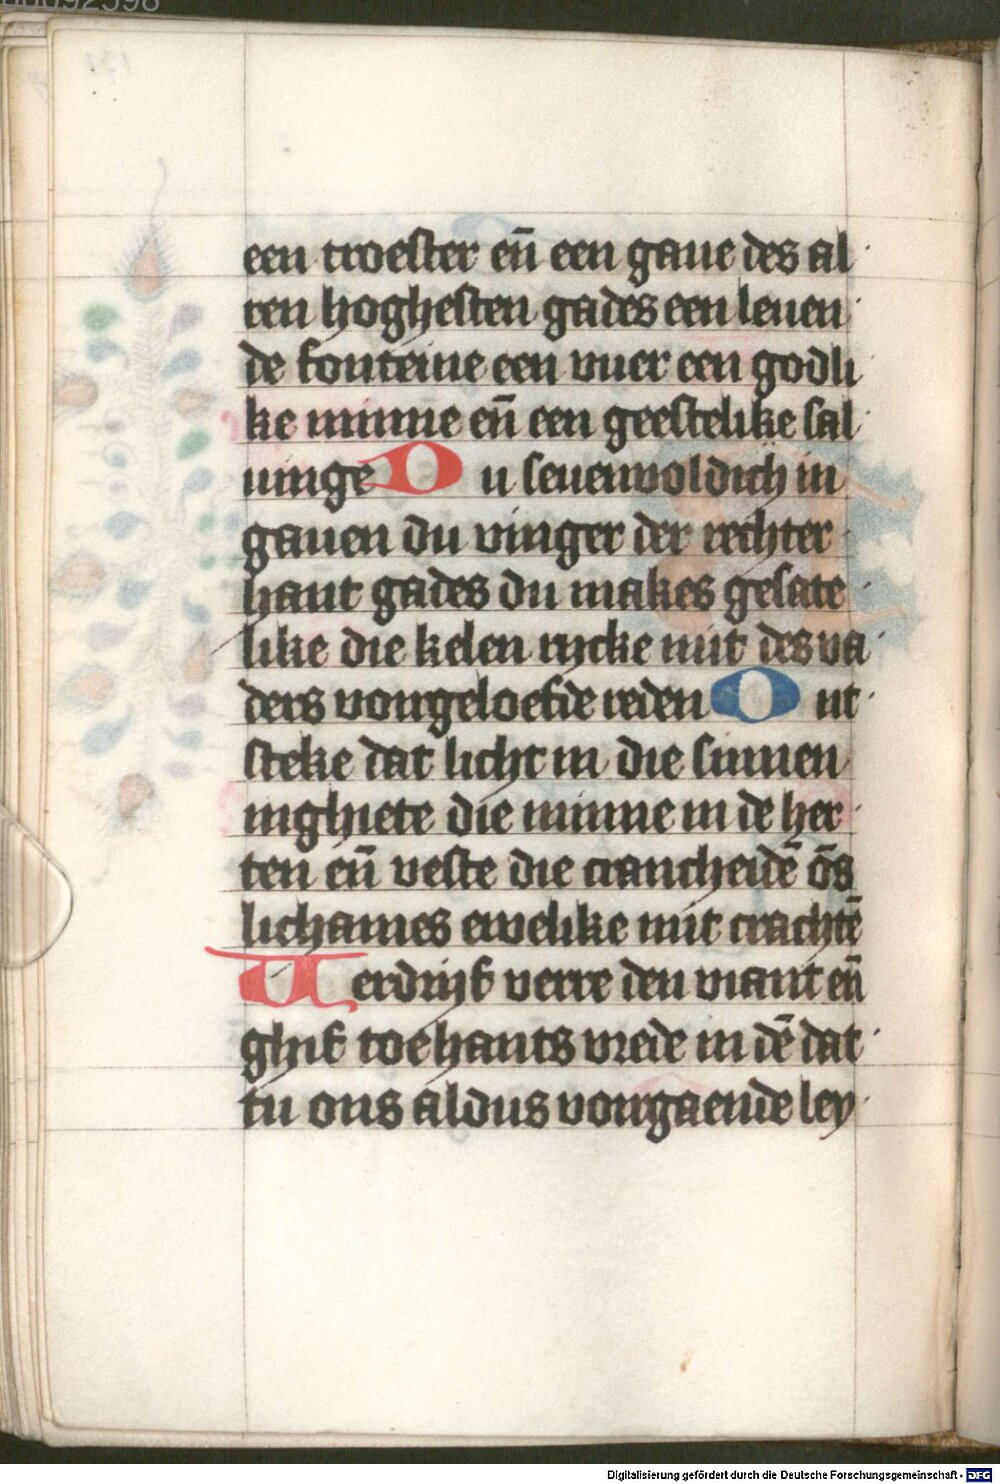 een troester en̄ een gaue des al
ren hoghesten gades een leuen
de fonteine een vuer een godli
ke minne en̄ een geestelike sal
uinge Du seuenuoldich in
gauen du vinger der rechter
hant gades du makes gesate
like die kelen rycke mit des va
ders vorgeloefde reden Ont
steke dat licht in die sinnen
inghiete die minne in de her
ten en̄ veste die cranchedē ōs
lichames ewelike mit crachtē
Uerdrijf verre den viant en̄
ghif toehants vrede in dē dat
tu ons aldus vorgaende ley
Digitalisierung gefördert durch die Deutsche Forschungsgemeinschaft - DFG